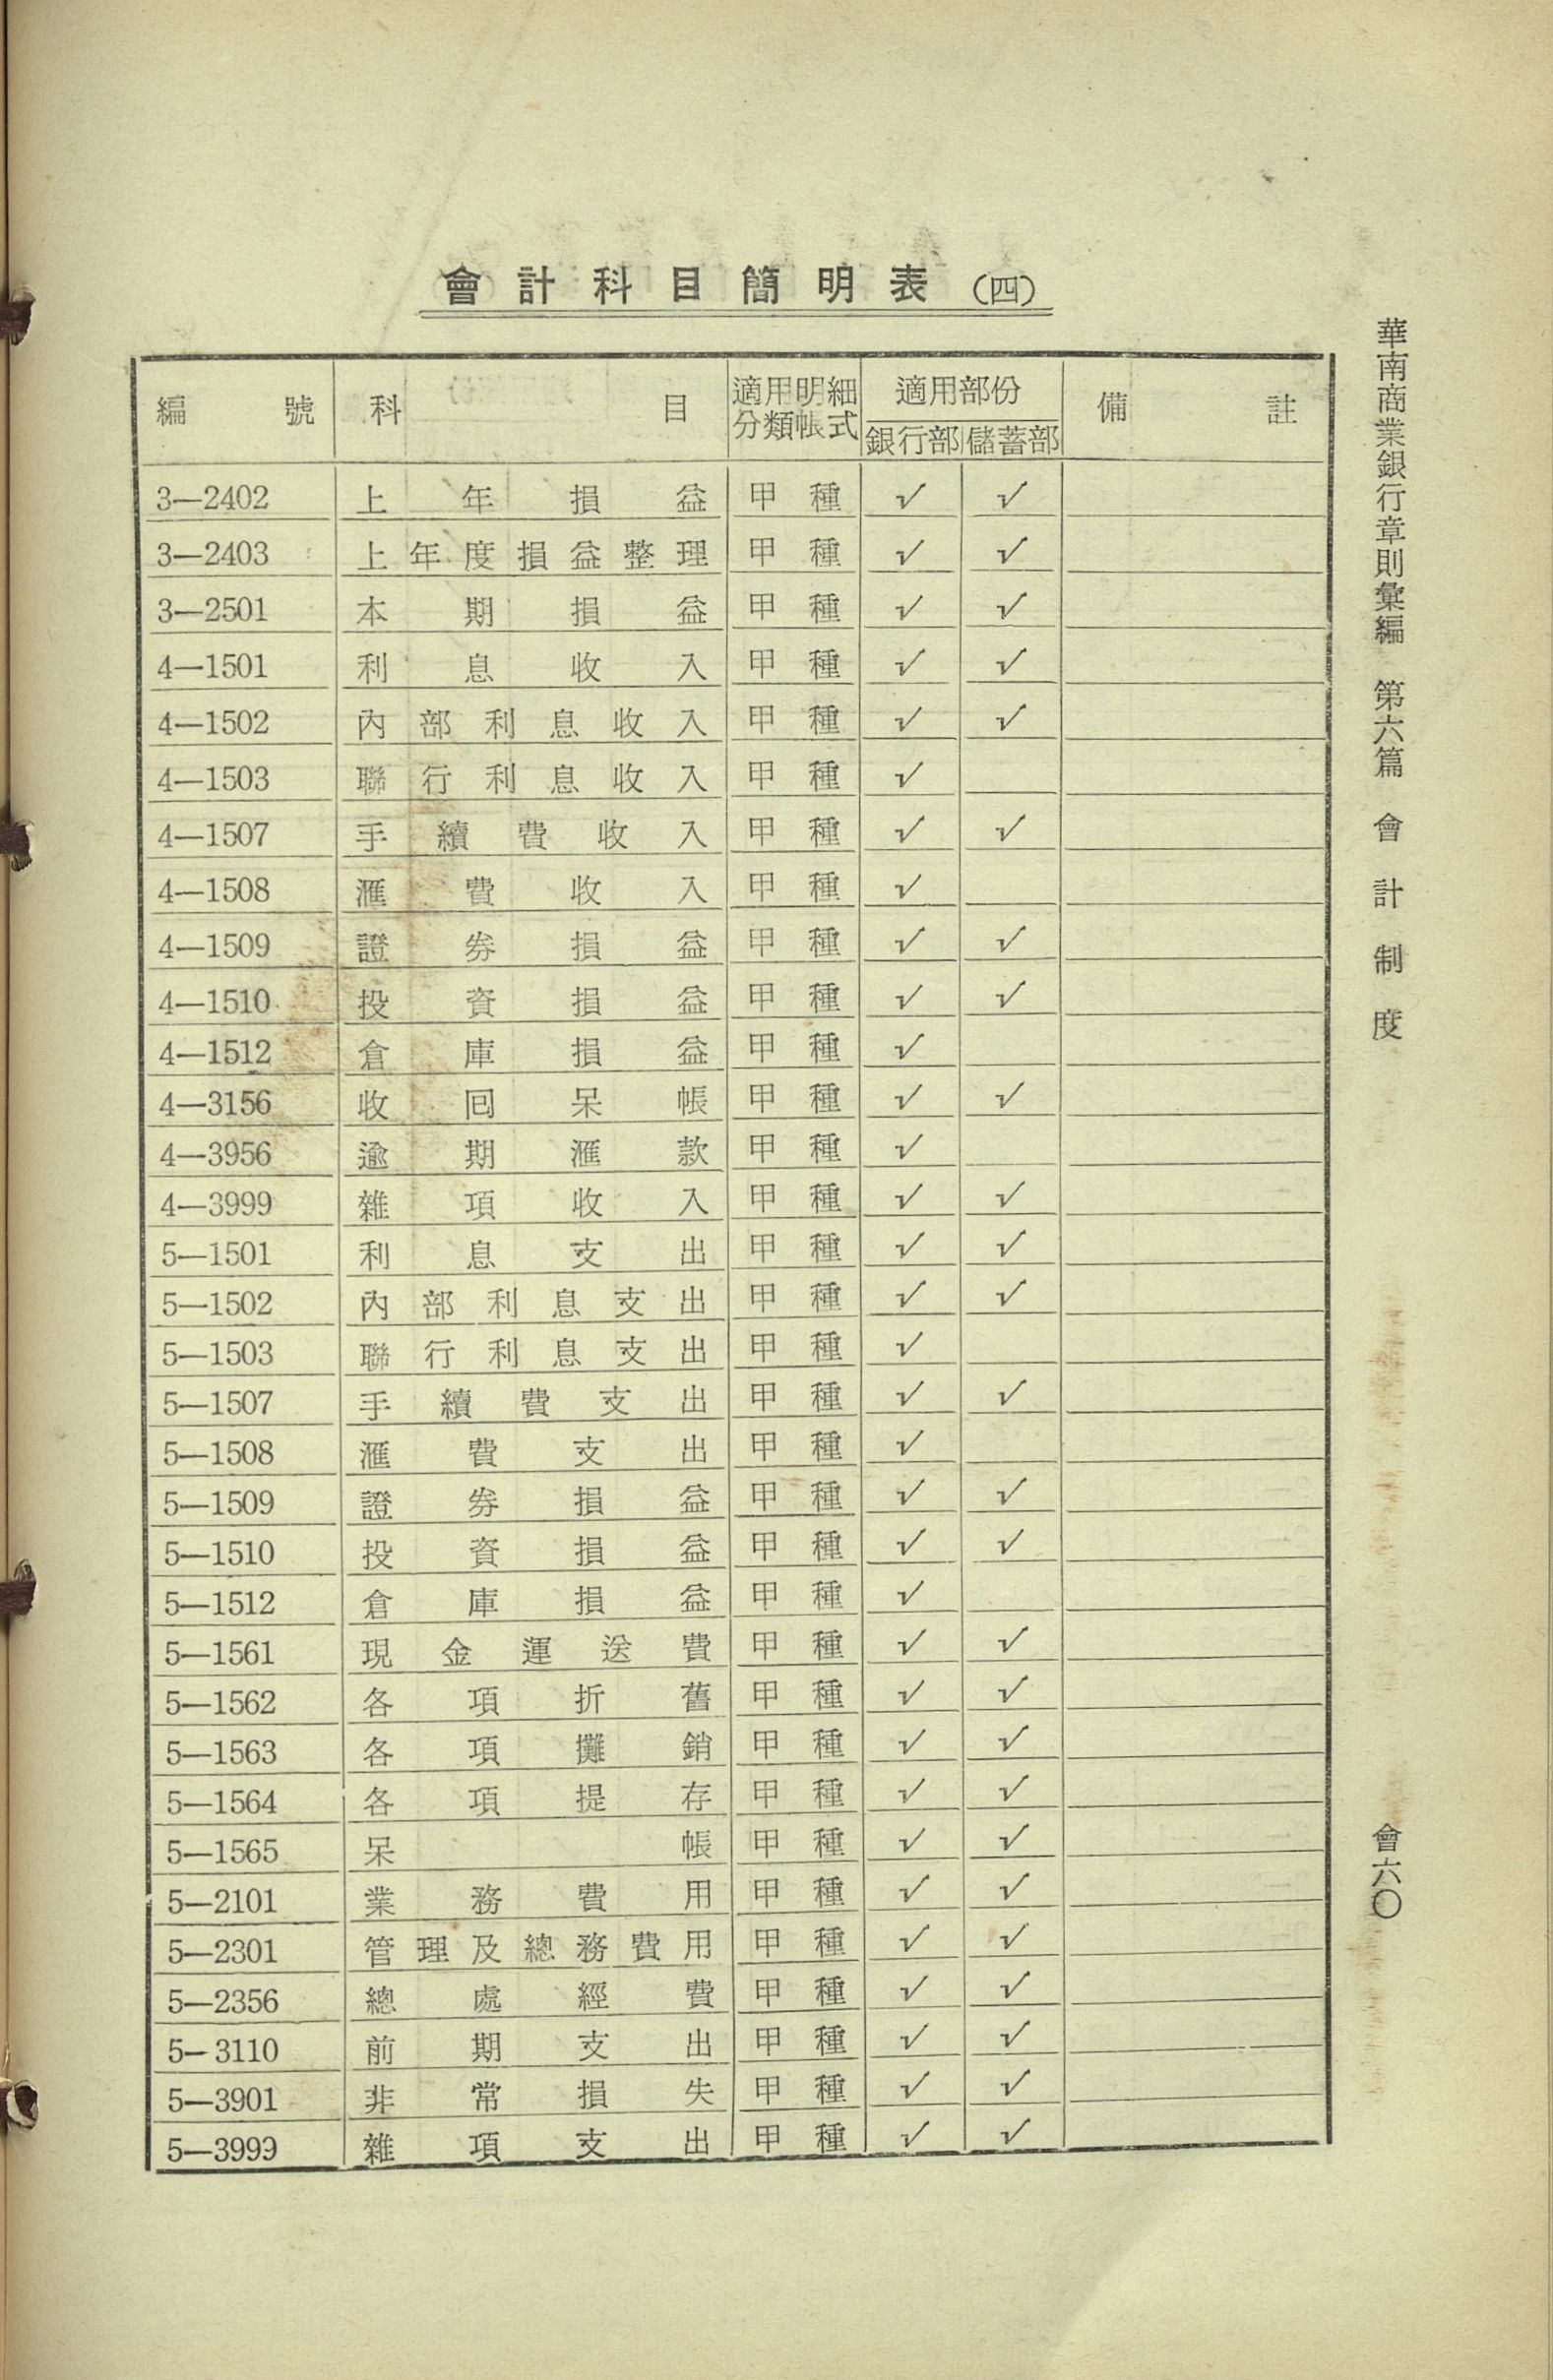 華南商業銀行章則彙編　第六篇　會計制度　會六〇
會計科目簡明表（四）
編號　科目　適用明細分類帳式　適用部份　銀行部　儲蓄部　備註
3—2402　上年損益　甲種　✓　✓
3—2403　上年度損益整理　甲種　✓　✓
3—2501　本期損益　甲種　✓　✓
4—1501　利息收入　甲種　✓　✓
4—1502　內部利息收入　甲種　✓　✓
4—1503　聯行利息收入　甲種　✓
4—1507　手續費收入　甲種　✓　✓
4—1508　滙費收入　甲種　✓
4—1509　證券損益　甲種　✓　✓
4—1510　投資損益　甲種　✓　✓
4—1512　倉庫損益　甲種　✓
4—3156　收回呆帳　甲種　✓　✓
4—3956　逾期滙款　甲種　✓
4—3999　雜項收入　甲種　✓　✓
5—1501　利息支出　甲種　✓　✓
5—1502　內部利息支出　甲種　✓　✓
5—1503　聯行利息支出　甲種　✓
5—1507　手續費支出　甲種　✓　✓
5—1508　滙費支出　甲種　✓
5—1509　證券損益　甲種　✓　✓
5—1510　投資損益　甲種　✓　✓
5—1512　倉庫損益　甲種　✓
5—1561　現金運送費　甲種　✓　✓
5—1562　各項折舊　甲種　✓　✓
5—1563　各項攤銷　甲種　✓　✓
5—1564　各項提存　甲種　✓　✓
5—1565　呆帳　甲種　✓　✓
5—2101　業務費用　甲種　✓　✓
5—2301　管理及總務費用　甲種　✓　✓
5—2356　總處經費　甲種　✓　✓
5—3110　前期支出　甲種　✓　✓
5—3901　非常損失　甲種　✓　✓
5—3999　雜項支出　甲種　✓　✓